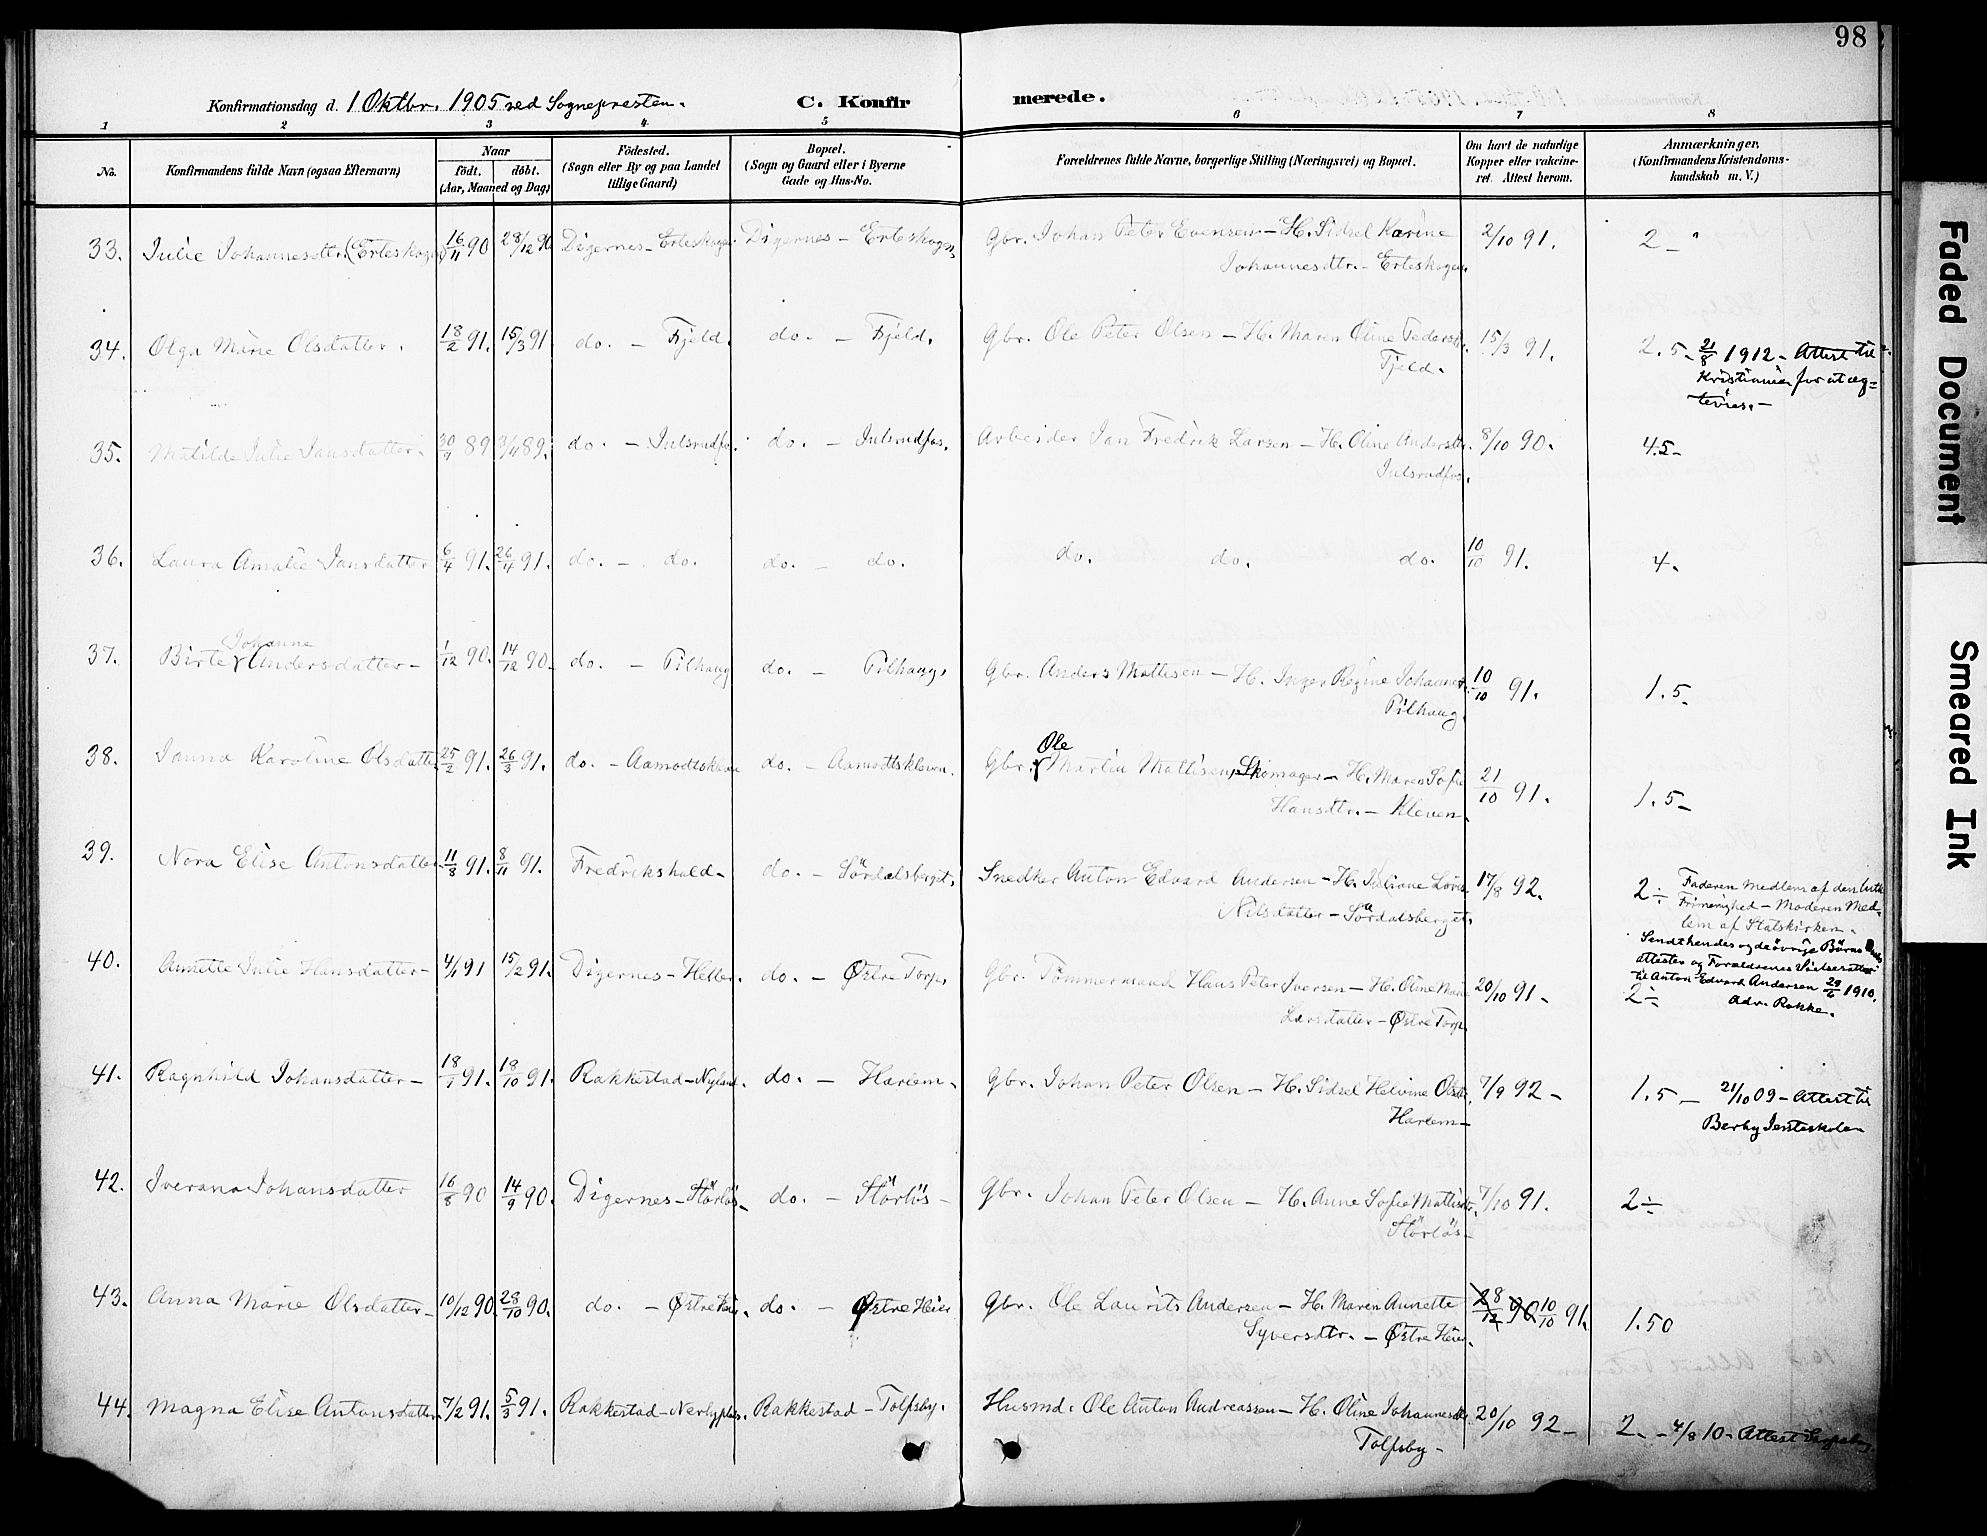 98
Konfirmationsdag d. 1 Oktbr. 1905 ved Sognepresten. C. Konfirmerede.
1 2 3 4 5 6 7 8
No. Konfirmandens fulde Navn (ogsaa Efternavn) Naar født. døbt. (Aar, Maaned og Dag) Fødested. (Sogn eller By og paa Landet tillige Gaard) Bopæl. (Sogn og Gaard eller i Byerne Gade og Hus-No. Forældrenes fulde Navne, borgerlige Stilling (Næringsvei) og Bopæl. Om havt de naturlige Kopper eller vakcineret. Attest herom. Anmærkninger, (Konfirmandens Kristendomskundskab m. V.)
33. Julie Johannesdtr. (Erteskogen 16/11 90 28/12 90 Digernes – Erteskogen. Digernes – Erteskogen, Gbr. Johan Peter Evensen – H. Sidsel Karine 2/10 91. 2 –
Johannesdtr. – Erteskogen.
34. Olga Marie Olsdatter. 18/2 91. 15/3 91 do. – Fjeld. do. – Fjeld. Gbr. Ole Peter Olsen – H. Maren Oline Pedersdtr. 15/3 91. 2.5 – 21/8 1912 – Attest til
Fjeld. Kristiania for at æg-
tevies. –
35. Matilde Julie Jansdatter. 89 89. do. – Julsrudfos. do. – Julsrudfos. Arbeider Jan Fredrik Larsen – H. Oline Andersdtr. 8/10 90. 4.5 –
Julsrudfos.
36. Laura Amalie Jansdatter 6/4 91. 26/4 91. do. – do. do. – do. do. do. do. 10/10 91. 4.
37. Birte Johanne Andersdatter – 1/12 90. 14/12 90. do. – Pilhaug do. – Pilhaug, Gbr. Anders Mattisen – H. Inger Regine Johannes. 10/10 91. 1.5.
Pilhaug.
38. Janna Karoline Olsdatter 25/2 91. 26/3 91. do. – Aamodtskleven do. – Aamodtskleven. Gbr. Ole Martin Mattisen, Skomager – H. Maren Sofie 21/10 91. 1.5 –
Hansdtr. – Kleven.
39. Nora Elise Antonsdatter 11/8 91. 8/11 91. Fredrikshald – do. – Sördalsberget, Snedker Anton Edvard Andersen – H. Juliane Lovis 17/8 92. 2 ÷ Faderen Medlem af den luth.
Nilsdatter – Sördalsberget. Frimenighed – Moderen Med-
lem af Statskirken.
Sendt hendes og de övrige Börns
attester og Forældrenes Vielsesattest
til Anton Edvard Andersen 29/6 1910.
adr. Rokke.
40. Annette Julie Hansdatter – 4/1 91 15/2 91. Digernes – Heller. do. – Østre Torp, Gbr. Tömmermand Hans Peter Iversen – H. Oline Marie 20/10 91 – 2 –
Larsdatter – Østre Torp.
41. Ragnhild Johansdatter – 91. 18/10 91. Rakkestad – Nyland. do. – Harlem – Gbr. Johan Peter Olsen – H. Sidsel Helvine Olsdtr. 7/9 92 – 1.5 – 21/10 09 – Attest til
Harlem – Berby Jenteskole
42. Iverana Johansdatter 16/8 90 14/9 90. Digernes – Störlös – do. – Störlös – Gbr. Johan Peter Olsen – H. Anne Sofie Mattisdtr. 7/10 91. 2 ÷
Störlös –
43. Anna Marie Olsdatter – 10/12 90. 28/10 90. do. – Østre Heier. do. – Østre Heier Gbr. Ole Laurits Andersen – H. Maren Annette 28/12 90 10/10 91. 1.50
Syversdtr. – Østre Heier.
44. Magna Elise Antonsdatter. 7/2 91. 5/3 91. Rakkestad – Nerbyplds. Rakkestad – Tolfsby. Husmd. Ole Anton Andreassen – H. Oline Johannesdtr. 20/10 92 – 2 – 4/8 10 – Attest
Tolfsby –
Faded Document
Smeared Ink